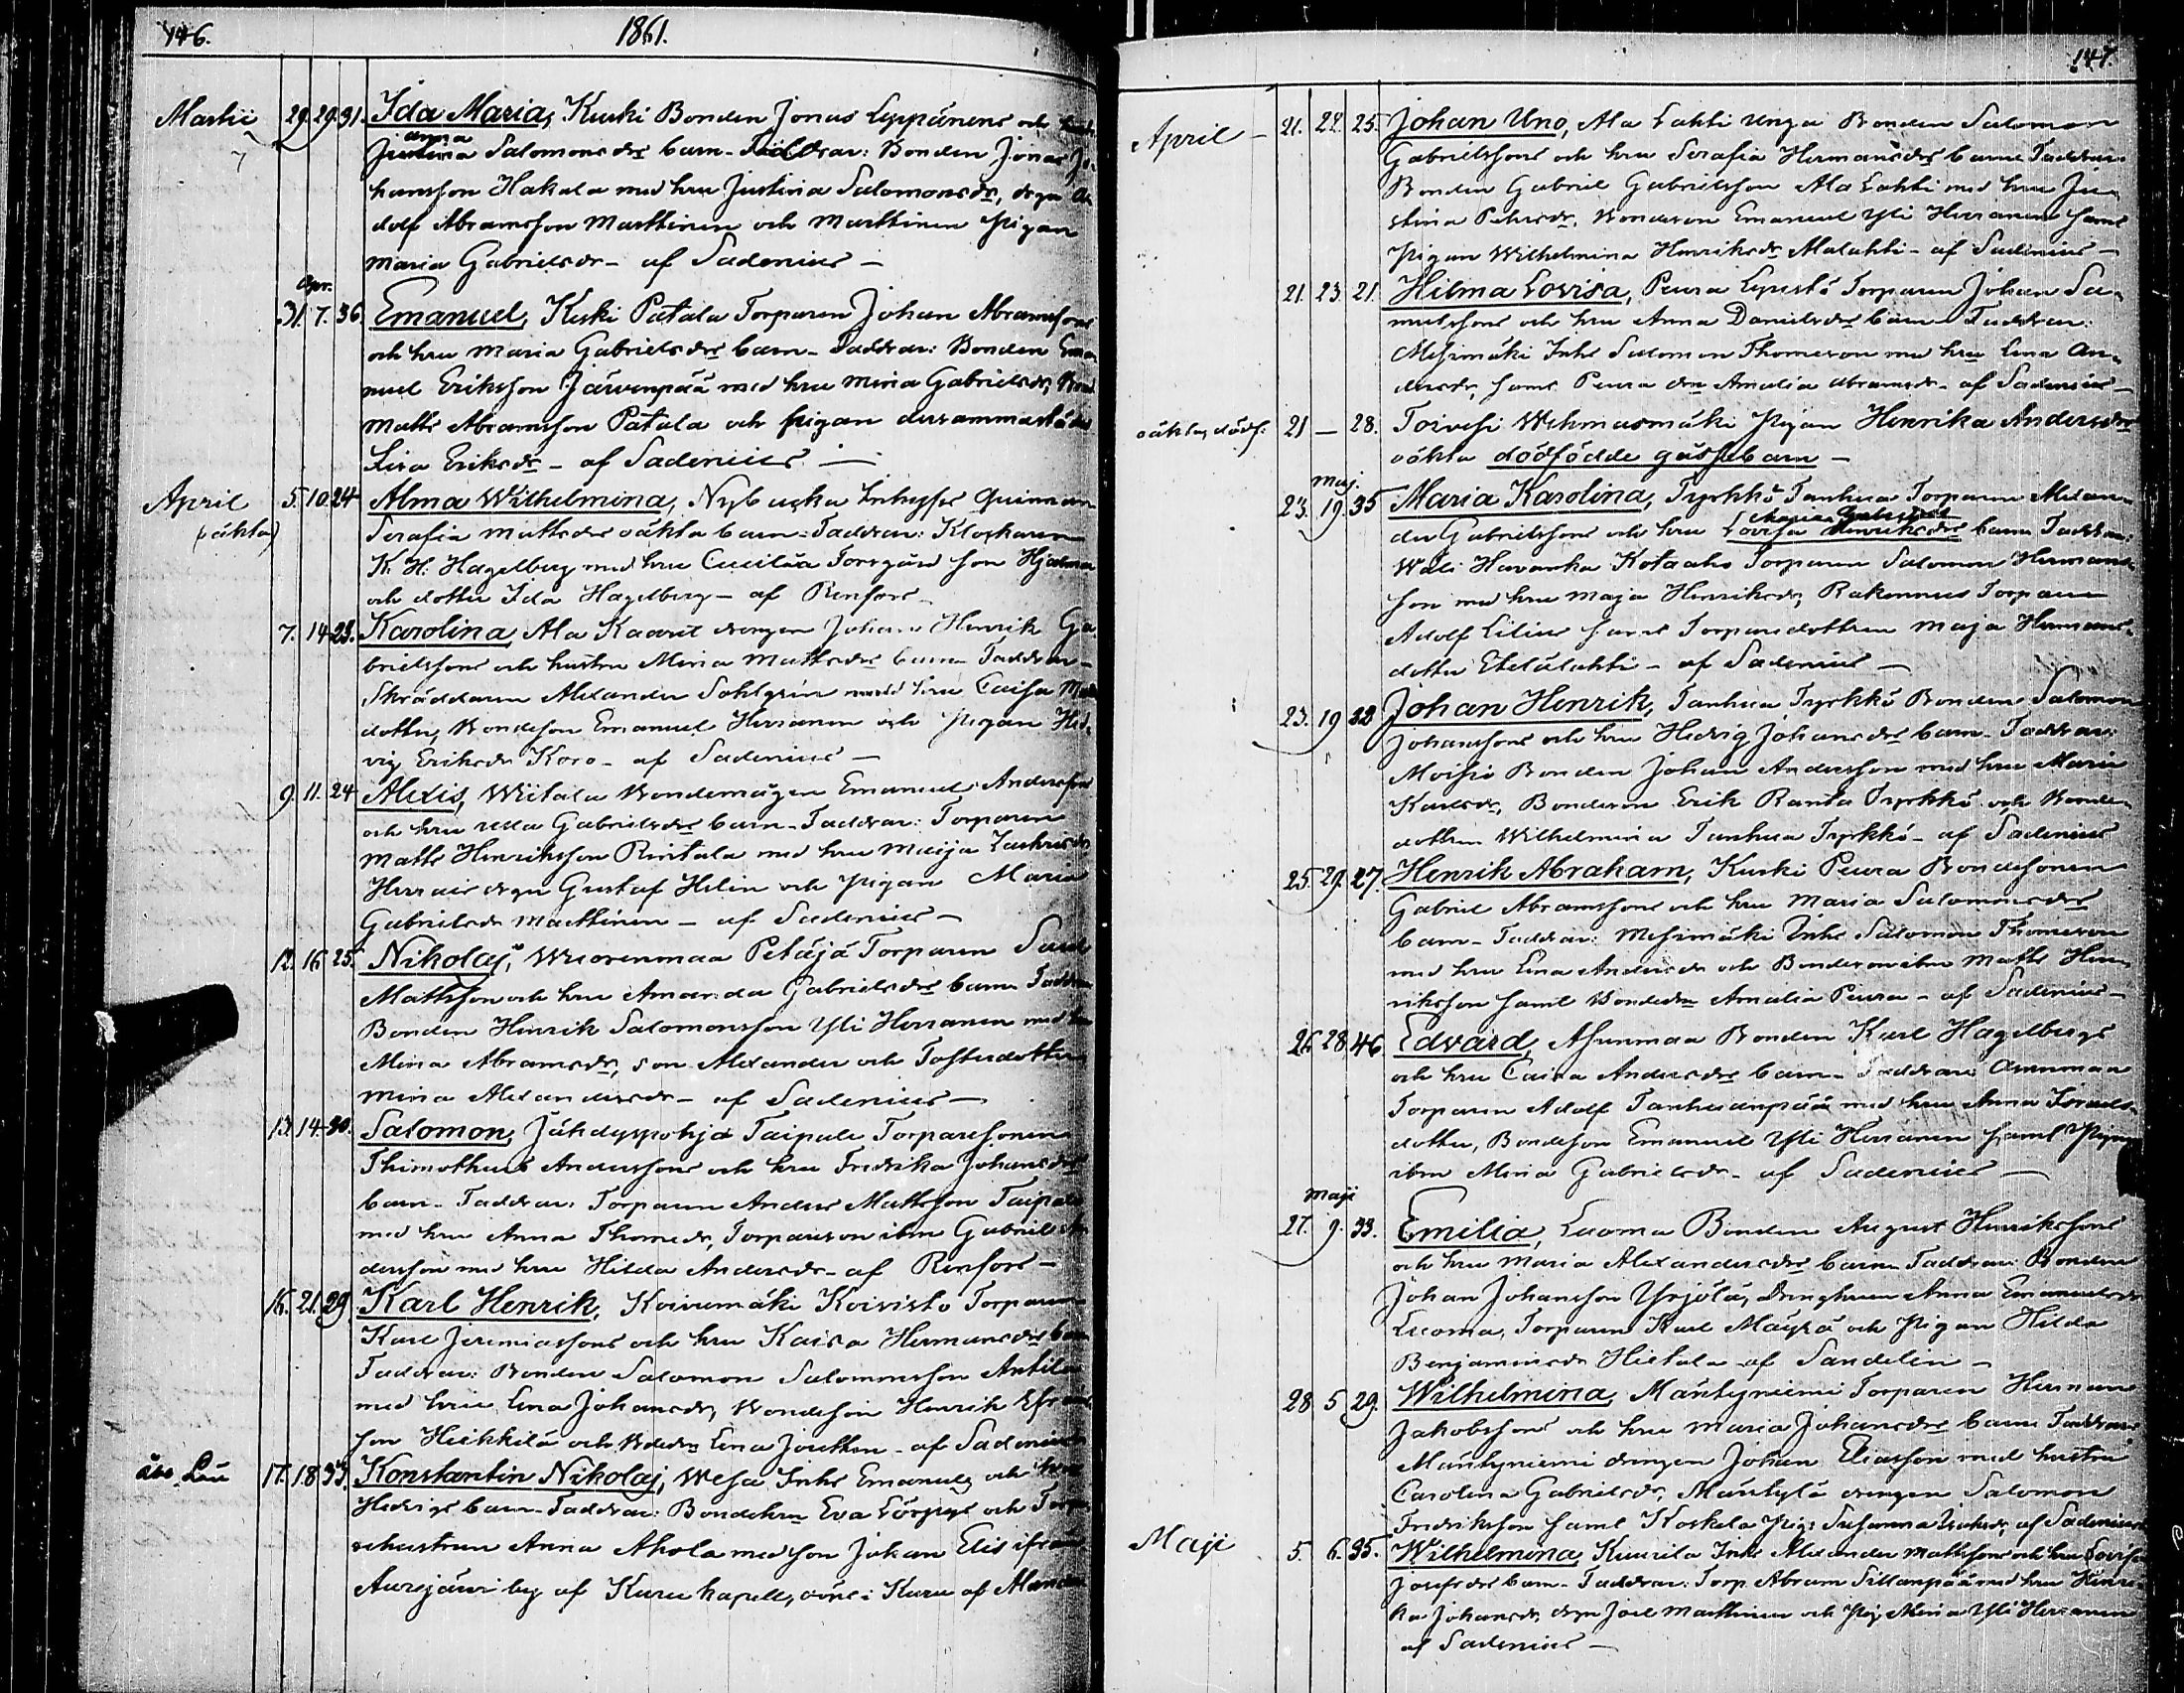 146.
1861.
Martii 29. 29. 31. Ida Maria, Kurki Bonden Jonas Leppänens och
anna
Justina Salomonsdrs barn - Faddrar: Bonden Jonas Jo-
hansson Hakala med hru Justina Salomonsdr, drgn A-
dolf Abramsson Marttinen och Marttinen Pigan
Maria Gabrielsdr - af Sadenius -
Apr.
31. 7. 36. Emanuel, Keski Patala Torparen Johan Abramssons
och hru Maria Gabrielsdrs barn - Faddrar: Bonden Ema-
nuel Eriksson Järvenpää med hru Mina Gabrielsdr,
Matts Abramsson Patala och pigan dersammastädes
Lisa Eriksdr - af Sadenius -
April 5. 10. 24 Alma Wilhelmina, Nybacka Inhyses Qvinnan
(oäkta) Serafia Mattsdrs oäkta barn: Faddrar: Klockaren
K. H. Hagelberg med hru Cecilia Forsgård son Hjalmar
och dotter Ida Hagelberg - af Renfors -
7. 14. 23. Karolina, Ala Kaarit drengen Johan Henrik Ga-
brielssons och hustru Mina Mattsdrs barn Faddrar -
Skräddaren Alexander Sohlgrén med hru Caisa
dotter, Bondeson Emanuel Herranen och Pigan Hed-
vig Eriksdr Koro - af Sadenius -
9. 11. 24 Alexis, Wiitala Bondemågen Emanuel Anderssons
och hru Ulla Gabrielsdrs barn - Faddrar: Torparen
Matts Henriksson Rintala med hru Maija Zachrisdr
drgn Gustaf Helin och Pigan Maria
Gabrielsdr Marttinen - af Sadenius -
12. 16. 25. Nikolaj, Wuorenmaa Petäjä Torparen
Mattsson och hru Amanda Gabrielsdrs barn Faddrar
Bonden Henrik Salomonsson Yli Herranen med hru
Mina Abramsdr, son Alexander och Fosterdotter
Mina Alexandersdr - af Sadenius -
13. 14. 30. Salomon, Jähdyspohja Taipale Torparesonen
Thimotheus Anderssons och hru Fredrika Johansdrs
barn - Faddrar: Torparen Anders Mattsson Taipale
med hru Anna Thomasdr, Torpareson ibm Gabriel An-
dersson med hru Hilda Andersdr - af Renfors -
16. 21. 29 Karl Henrik, Koivumäki Koivisto Torparen
Karl Jeremiassons och hru Kaisa Hermansdrs barn
Faddrar: Bonden Salomon Salomonsson Antila
med hru Lena Johansdr, Bondeson Henrik
son Heikkilä och Bdedr Lena - af Sadenius
17. 18. 33. Konstantin Nikolaj, Wesa Inhs Emanuels och hru
Hedvigs barn - Faddrar: Bondehru Eva och Torpa-
rehustrun Anna Ahola med son Johan Elis ifrån
Aurejärvi by af Kuru kapell, i Kuru af
147.
April - 21. 22. 25. Johan Uno, Ala Lahti unga Bonden Salomon
Gabrielssons och hru Serafia Hermansdrs barn Faddrar
Bonden Gabriel Gabrielsson Ala Lahti med hru Ju-
stina Petersdr, Bondeson Emanuel Yli Herranen samt
Pigan Wilhelmina Henriksdr Alalahti - af Sadenius -
21. 23. 21. Hilma Lovisa, Peura Torparen Johan Sa-
muelssons och hru Anna Danielsdrs barn - Faddrar:
Mesimäki Inhs Salomon Thomasson med hru Lena An-
dersdr, samt Peura drn Amalia Abramsdr - af Sadenius -
oäkta, dödf. 21 - 28. Toivesi Wehmasmäki Pigan Henrika Andersdrs
oäkta dödfödde gossebarn -
Maj.
23. 19. 35 Maria Karolina, Tyrkkö Tanhua Torparen Alexan-
Maria Gabrielsdrs
der Gabrielssons och hru Lovisa Henriksdrs barn Faddrar:
Wäli Havanka Kotaaho Torparen Salomon Hermans-
son med hru Maja Henriksdr, Rakennus Torparen
Adolf Lilius samt Torparedottren Maja Hermans-
dotter Etelälahti - af Sadenius -
23. 19 32 Johan Henrik, Tanhua Tyrkkö Bonden Salomon
Johanssons och hru Hedvig Johansdrs barn - Faddrar:
Moisio Bonden Johan Andersson med hru Maria
Karlsdr, Bondeson Erik Ranta Tyrkkö och Bonde-
dottren Wilhelmina Tanhua Tyrkkö - af Sadenius
25. 29. 27. Henrik Abraham, Kurki Peura Bondesonen
Gabriel Abramssons och hru Maria Salomonsdrs
barn - Faddrar: Mesimäki Inhs Salomon Thomasson
med hru Lena Andersdr och Bondeson ibm Matts Hen-
riksson samt Bondedrn Amalia Peura - af Sadenius -
26 28. 46 Edvard, Asunmaa Bonden Karl Hagelbergs
och hru Caisa Andersdrs barn - Faddrar: Asunmaa
Torparen Adolf Tanhuanpää med hru Anna Israels-
dotter, Bondeson Emanuel Yli Herranen samt Pigan
ibm Mina Gabrielsdr - af Sadenius -
Maji
27. 9. 33. Emilia, Luoma Bonden August Henrikssons
och hru Maria Alexandersdrs barn Faddrar: Bonden
Johan Johansson Yrjölä, Drenghrun Anna Emanuelsdr
Luoma, Torparen Karl Mäyrä och Pigan Hilda
Benjaminsdr Hietala - af Sandelin -
28 5 29. Wilhelmina, Mäntyniemi Torparen Herman
Jakobssons och hru Maria Johansdrs barn Faddrar
Mäntyniemi drengen Johan Eliasson med hustru
Carolina Gabrielsdr, Mäntylä drengen Salomon
Fredriksson samt Koskela Pig: Susanna af Sadenius
Maji 5. 6. 35. Wilhelmina, Kiurila Inhs Alexander Mattssons och hru Lovisa
Josefsdrs barn - Faddrar: Torp. Abram Sillanpää med hru Henri-
ka Johansdr, drgn Joel Marttinen och Pig. Mina Yli Herranen
af Sadenius -